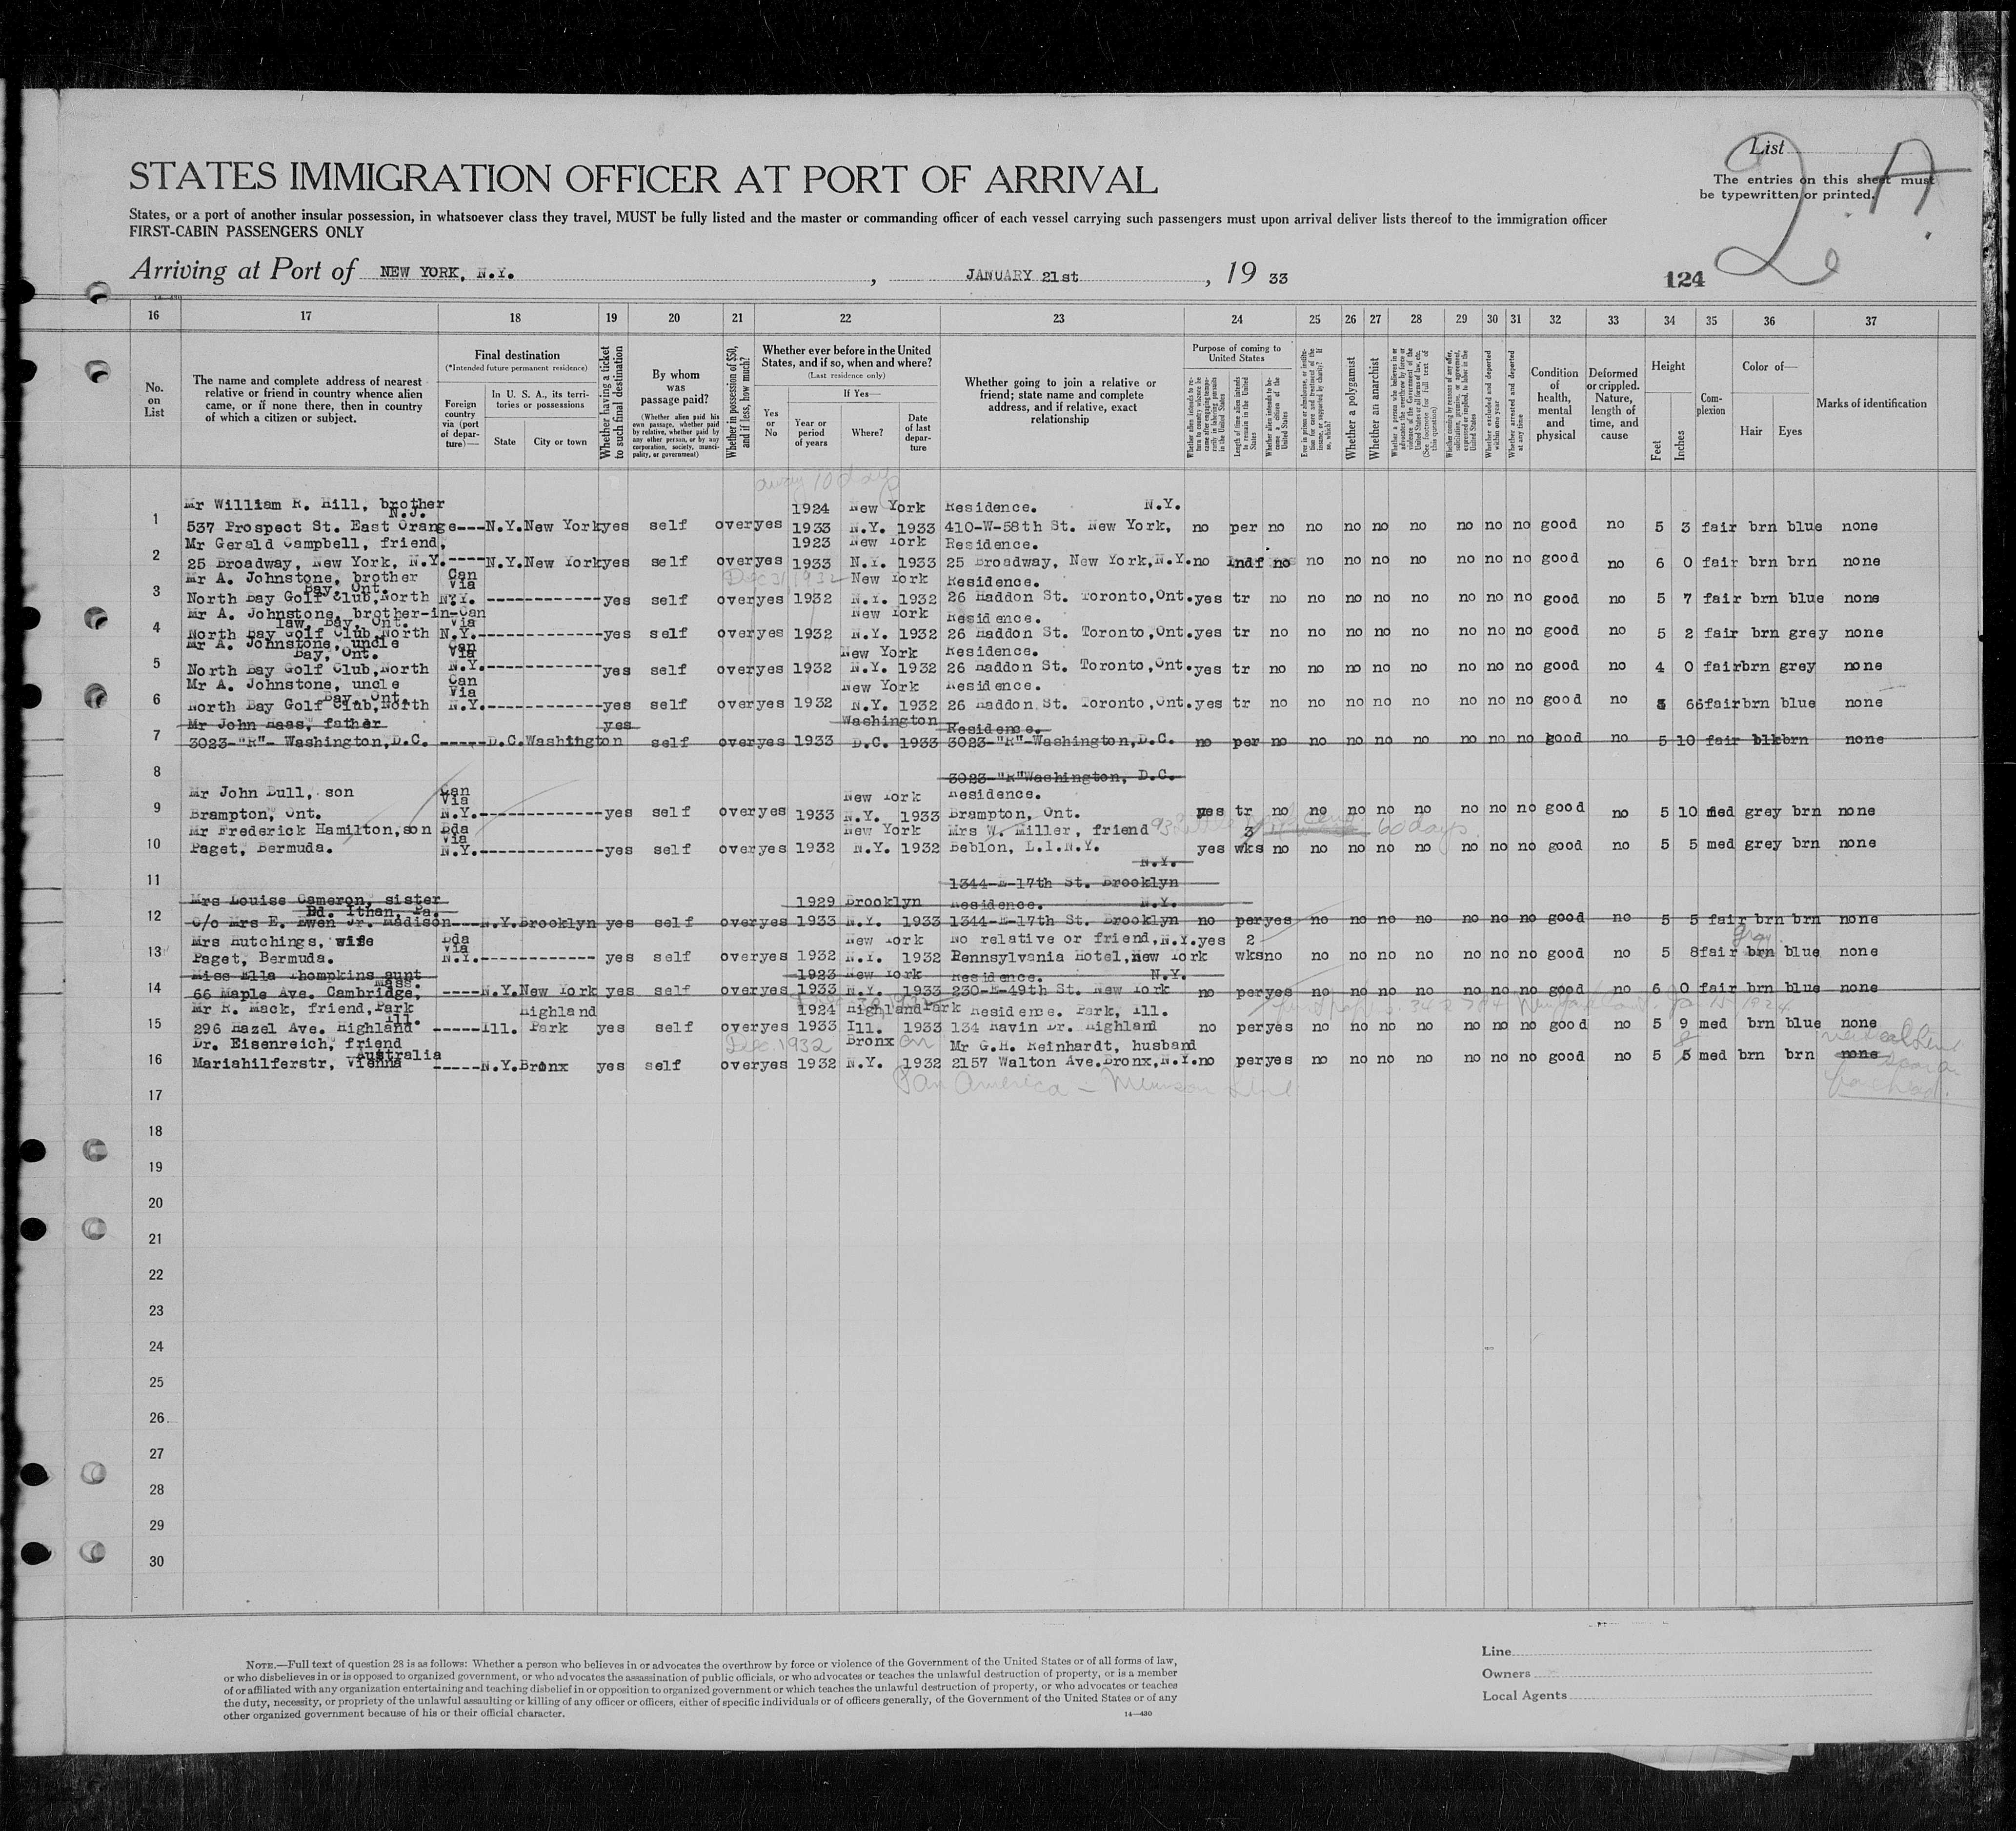 List
2 A
STATES IMMIGRATION OFFICER AT PORT OF ARRIVAL
The entries on this sheet must
be typewritten or printed.
States, or a port of another insular possession, in whatsoever class they travel, MUST be fully listed and the master or commanding officer of each vessel carrying such passengers must upon arrival deliver lists thereof to the immigration officer
FIRST-CABIN PASSENGERS ONLY
Arriving at Port of NEW YORK, N.Y. , JANUARY 21st , 19 33
124
16 17 18 19 20 21 22 23 24 25 26 27 28 29 30 31 32 33 34 35 36 37
No. on List
The name and complete address of nearest relative or friend in country whence alien came, or if none there, then in country of which a citizen or subject.
Final destination
(*Intended future permanent residence)
Foreign country via (port of departure)—
In U. S. A., its territories or possessions
State
City or town
Whether having a ticket to such final destination
By whom was passage paid?
(Whether alien paid his own passage, whether paid by relative, whether paid by any other person, or by any corporation, society, municipality, or government)
Whether in possession of $50, and if less, how much?
Whether ever before in the United States, and if so, when and where?
(Last residence only)
Yes or No
If Yes—
Year or period of years
Where?
Date of last departure
Whether going to join a relative or friend; state name and complete address, and if relative, exact relationship
Purpose of coming to United States
Length of time alien intends to remain in the United States
Whether alien intends to become a citizen of the United States
Whether a polygamist
Whether an anarchist
Whether excluded and deported within one year
Whether arrested and deported at any time
Condition of health, mental and physical
Deformed or crippled. Nature, length of time, and cause
Height
Feet
Inches
Complexion
Color of—
Hair
Eyes
Marks of identification
away 10 days
Mr William R. Hill, brother 1924 New York Residence. N.Y.
N.J.
1 537 Prospect St. East Orange---N.Y.New York yes self over yes 1933 N.Y. 1933 410-W-58th St. New York, no per no no no no no no no no good no 5 3 fair brn blue none
Mr Gerald Campbell, friend, 1923 New York Residence.
2 25 Broadway, New York, N.Y.----N.Y.New York yes self over yes 1933 N.Y. 1933 25 Broadway, New York,N.Y. no Indf no no no no no no no no good no 6 0 fair brn brn none
Mr A. Johnstone, brother Can Via Dec 31, 1932 New York Residence.
Bay, Ont.
3 North Bay Golf Club,North N.Y. ------------yes self over yes 1932 N.Y. 1932 26 Haddon St. Toronto,Ont. yes tr no no no no no no no no good no 5 7 fair brn blue none
Mr A. Johnstone, brother-in-Can Via New York Residence.
law, Bay, Ont.
4 North Bay Golf Club,North N.Y.-------------yes self over yes 1932 N.Y. 1932 26 Haddon St. Toronto,Ont. yes tr no no no no no no no no good no 5 2 fair brn grey none
Mr A. Johnstone, uncle Can Via New York Residence.
Bay, Ont.
5 North Bay Golf Club,North N.Y.------------yes self over yes 1932 N.Y. 1932 26 Haddon St. Toronto,Ont. yes tr no no no no no no no no good no 4 0 fair brn grey none
Mr A. Johnstone, uncle Can Via New York Residence.
Bay, Ont.
6 North Bay Golf Club,North N.Y.------------yes self over yes 1932 N.Y. 1932 26 Haddon St. Toronto,Ont. yes tr no no no no no no no no good no 6 fair brn blue none
Mr John Haas, father yes Washington Residence.
7 3023-"R"- Washington,D.C. -----D.C.Washington self over yes 1933 D.C. 1933 3023-"R"-Washington,D.C. no per no no no no no no no no good no 5 10 fair blk brn none
8 3023-"R"Washington, D.C.
Mr John Bull, son Can Via New York Residence.
9 Brampton, Ont. N.Y.-------------yes self over yes 1933 N.Y. 1933 Brampton, Ont. yes tr no no no no no no no no good no 5 10 med grey brn none
Mr Frederick Hamilton,son Bda Via New York Mrs W. Miller, friend 3 60 days
10 Paget, Bermuda. N.Y.-------------yes self over yes 1932 N.Y. 1932 Beblon, L.I.N.Y. yes wks no no no no no no no no good no 5 5 med grey brn none
N.Y.
11 1344-E-17th St. Brooklyn
Mrs Louise Cameron, sister 1929 Brooklyn Residence. N.Y.
Rd. Ithan, Pa.
12 C/o Mrs E. Ewen Jr. Madison---N.Y.Brooklyn yes self over yes 1933 N.Y. 1933 1344-E-17th St. Brooklyn no per yes no no no no no no no good no 5 5 fair brn brn none
Mrs Hutchings, wife Bda Via New York No relative or friend,N.Y. yes 2 gray
13 Paget, Bermuda. N.Y.------------ yes self over yes 1932 N.Y. 1932 Pennsylvania Hotel,New York wks no no no no no no no no good no 5 8 fair brn blue none
Miss Ella Thompkins aunt 1923 New York Residence. N.Y.
Mass.
14 66 Maple Ave. Cambridge, ----N.Y.New York yes self over yes 1933 N.Y. 1933 230-E-49th St. New York no per yes no no no no no no no good no 6 0 fair brn blue none
Mr R. Mack, friend,Park Highland 1924 Highland Park Residence. Park, Ill.
Ill.
15 296 Hazel Ave. Highland -----Ill. Park yes self over yes 1933 Ill. 1933 134 Ravin Dr. Highland no per yes no no no no no no no good no 5 9 med brn blue none
Dr. Eisenreich, friend Dec. 1932 Bronx Mr G.H. Reinhardt, husband
Australia
16 Mariahilferstr, Vienna -----N.Y.Bronx yes self over yes 1932 N.Y. 1932 2157 Walton Ave.Bronx,N.Y. no per yes no no no no no no no good no 5 5 med brn brn none
scar on
forehead.
Pan America - Munson Line
17
18
19
20
21
22
23
24
25
26
27
28
29
30
NOTE.—Full text of question 28 is as follows: Whether a person who believes in or advocates the overthrow by force or violence of the Government of the United States or of all forms of law,
or who disbelieves in or is opposed to organized government, or who advocates the assassination of public officials, or who advocates or teaches the unlawful destruction of property, or is a member
of or affiliated with any organization entertaining and teaching disbelief in or opposition to organized government or which teaches the unlawful destruction of property, or who advocates or teaches
the duty, necessity, or propriety of the unlawful assaulting or killing of any officer or officers, either of specific individuals or of officers generally, of the Government of the United States or of any
other organized government because of his or their official character.
14—430
Line
Owners
Local Agents